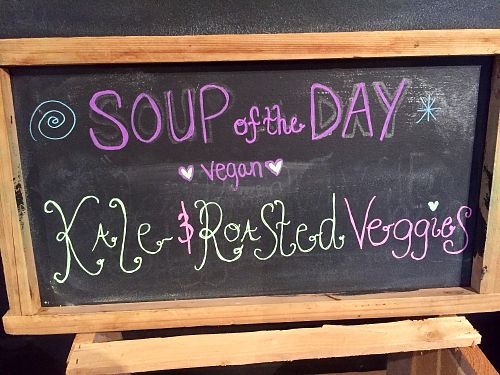 SOUP of the DAY
vegan
Kale & Roasted Veggies